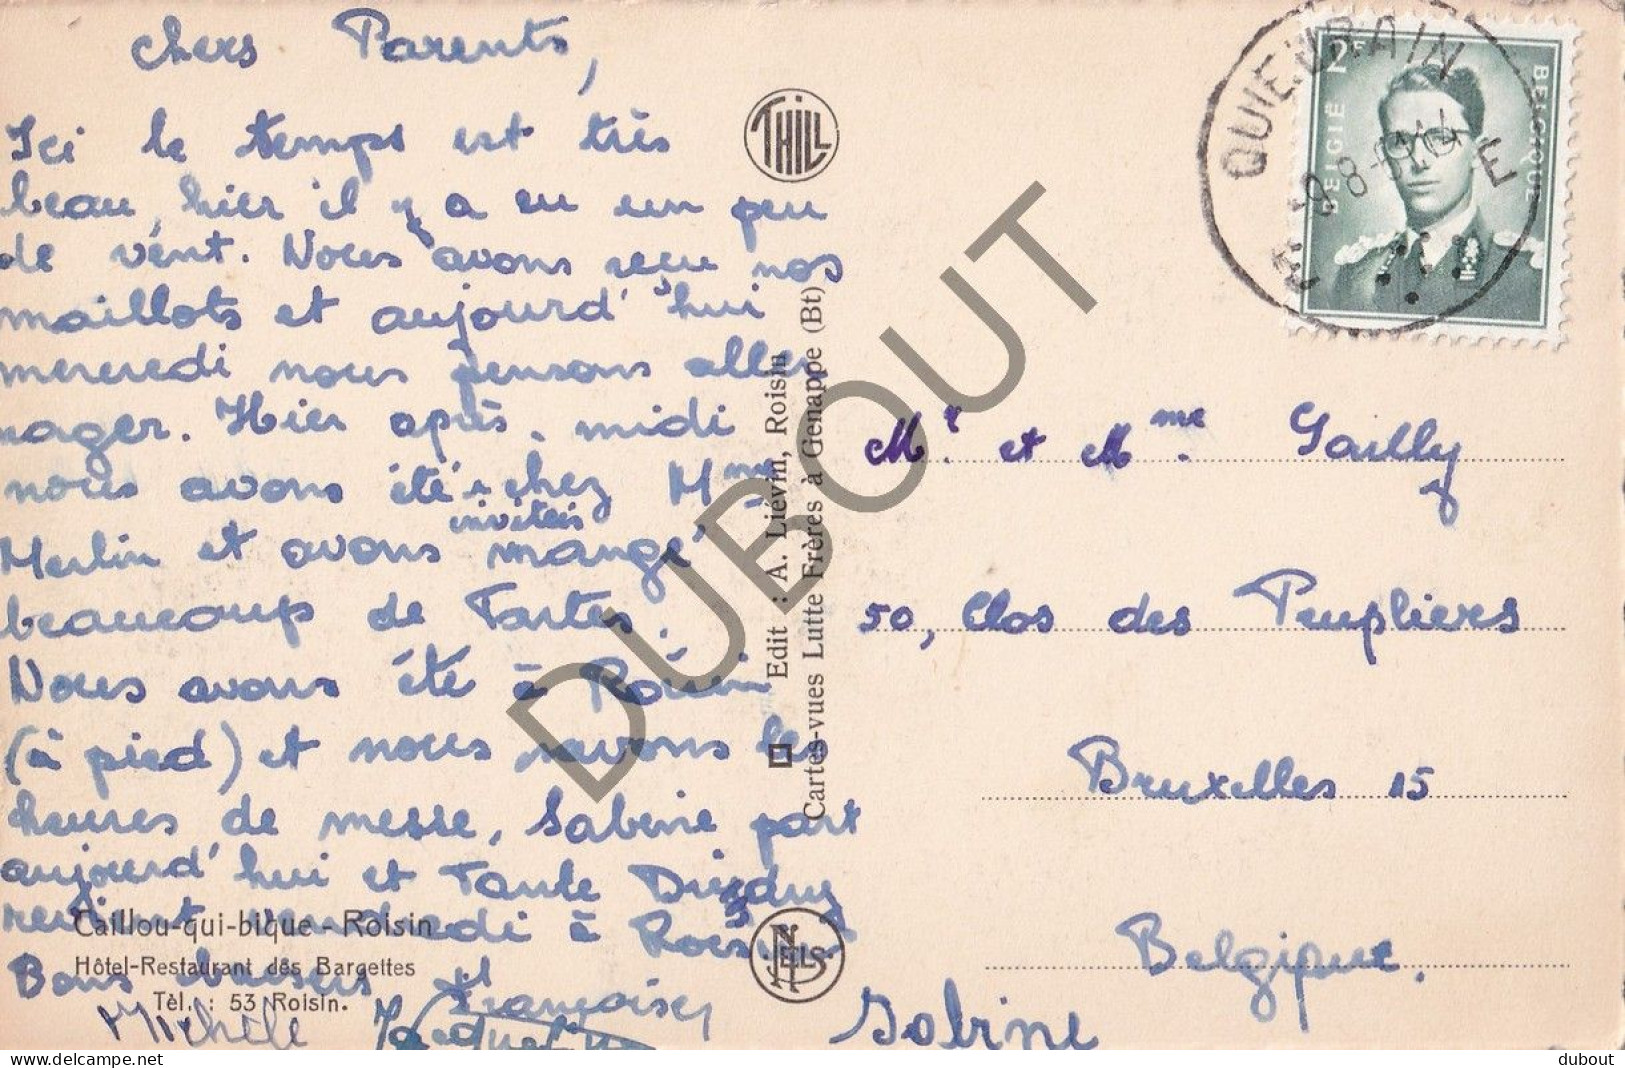 chers Parents,
Ici le temps est très
beau, hier il y a eu un peu
de vent. Nous avons reçu nos
maillots et aujourd'hui
mercredi nous pensons aller
nager. Hier après-midi
nous avons été chez Mme
invitées
Merlin et avons mangé
beaucoup de Tartes.
Nous avons été à Roisin
(à pied) et nous savons les
heures de messe, Sabine part
aujourd'hui et Tante
revient vendredi à
Bons baisers Françoise
Michèle
Sabine
Caillou-qui-bique - Roisin
Hôtel-Restaurant des Bargettes
Tél. : 53 Roisin.
THILL
NELS
Edit : A. Liévin, Roisin
Cartes-vues Lutte Frères à Genappe (Bt)
QUIEVRAIN
E
2F
BELGIË
BELGIQUE
Mr. et Mme. Gailly
50, Clos des Peupliers
Bruxelles 15
Belgique.
DUBOUT
delcampe.net
dubout